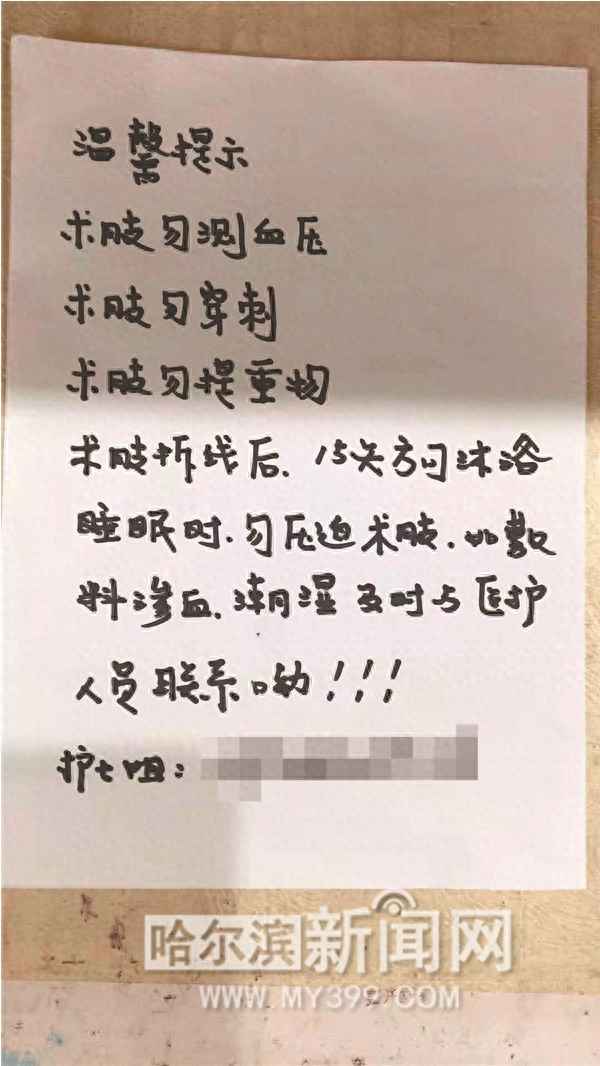 温馨提示
术肢勿测血压
术肢勿穿刺
术肢勿提重物
术肢拆线后、15天方可沐浴
睡眠时、勿压迫术肢、如敷
料渗血、潮湿及时与医护
人员联系呦！！！
护士咀：
哈尔滨新闻网
WWW.MY399.COM